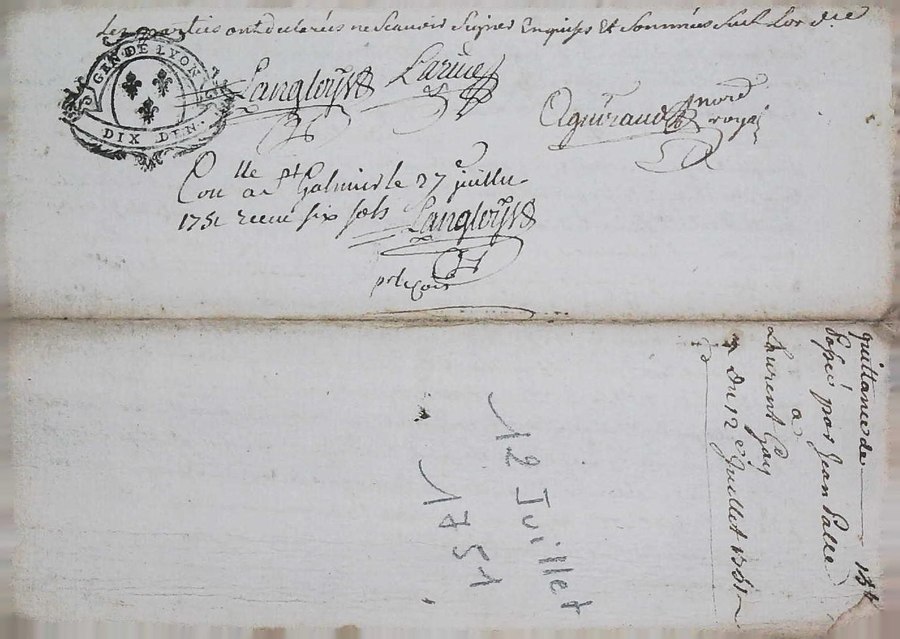 Les parties ont declarées ne scauoir signer Enquises Et sommées suiv. L'or.ce
GEN. DE LYON
DIX DEN.
Langloys Larue
Aguiraud nore
royal
Con.lle a St Galmier le 27 juillet
1751 receu six sols Langloys
quittance de
passé par Jean Palle
a
Laurent Gay
Du 12e Juillet 1751
12 Juillet
1751